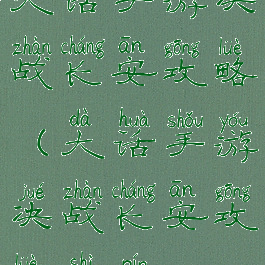 大话手游决
zhàn cháng ān gōng lüè
战长安攻略
dà huà shǒu yóu
（大话手游
jué zhàn cháng ān gōng
决战长安攻
lüè shì pín